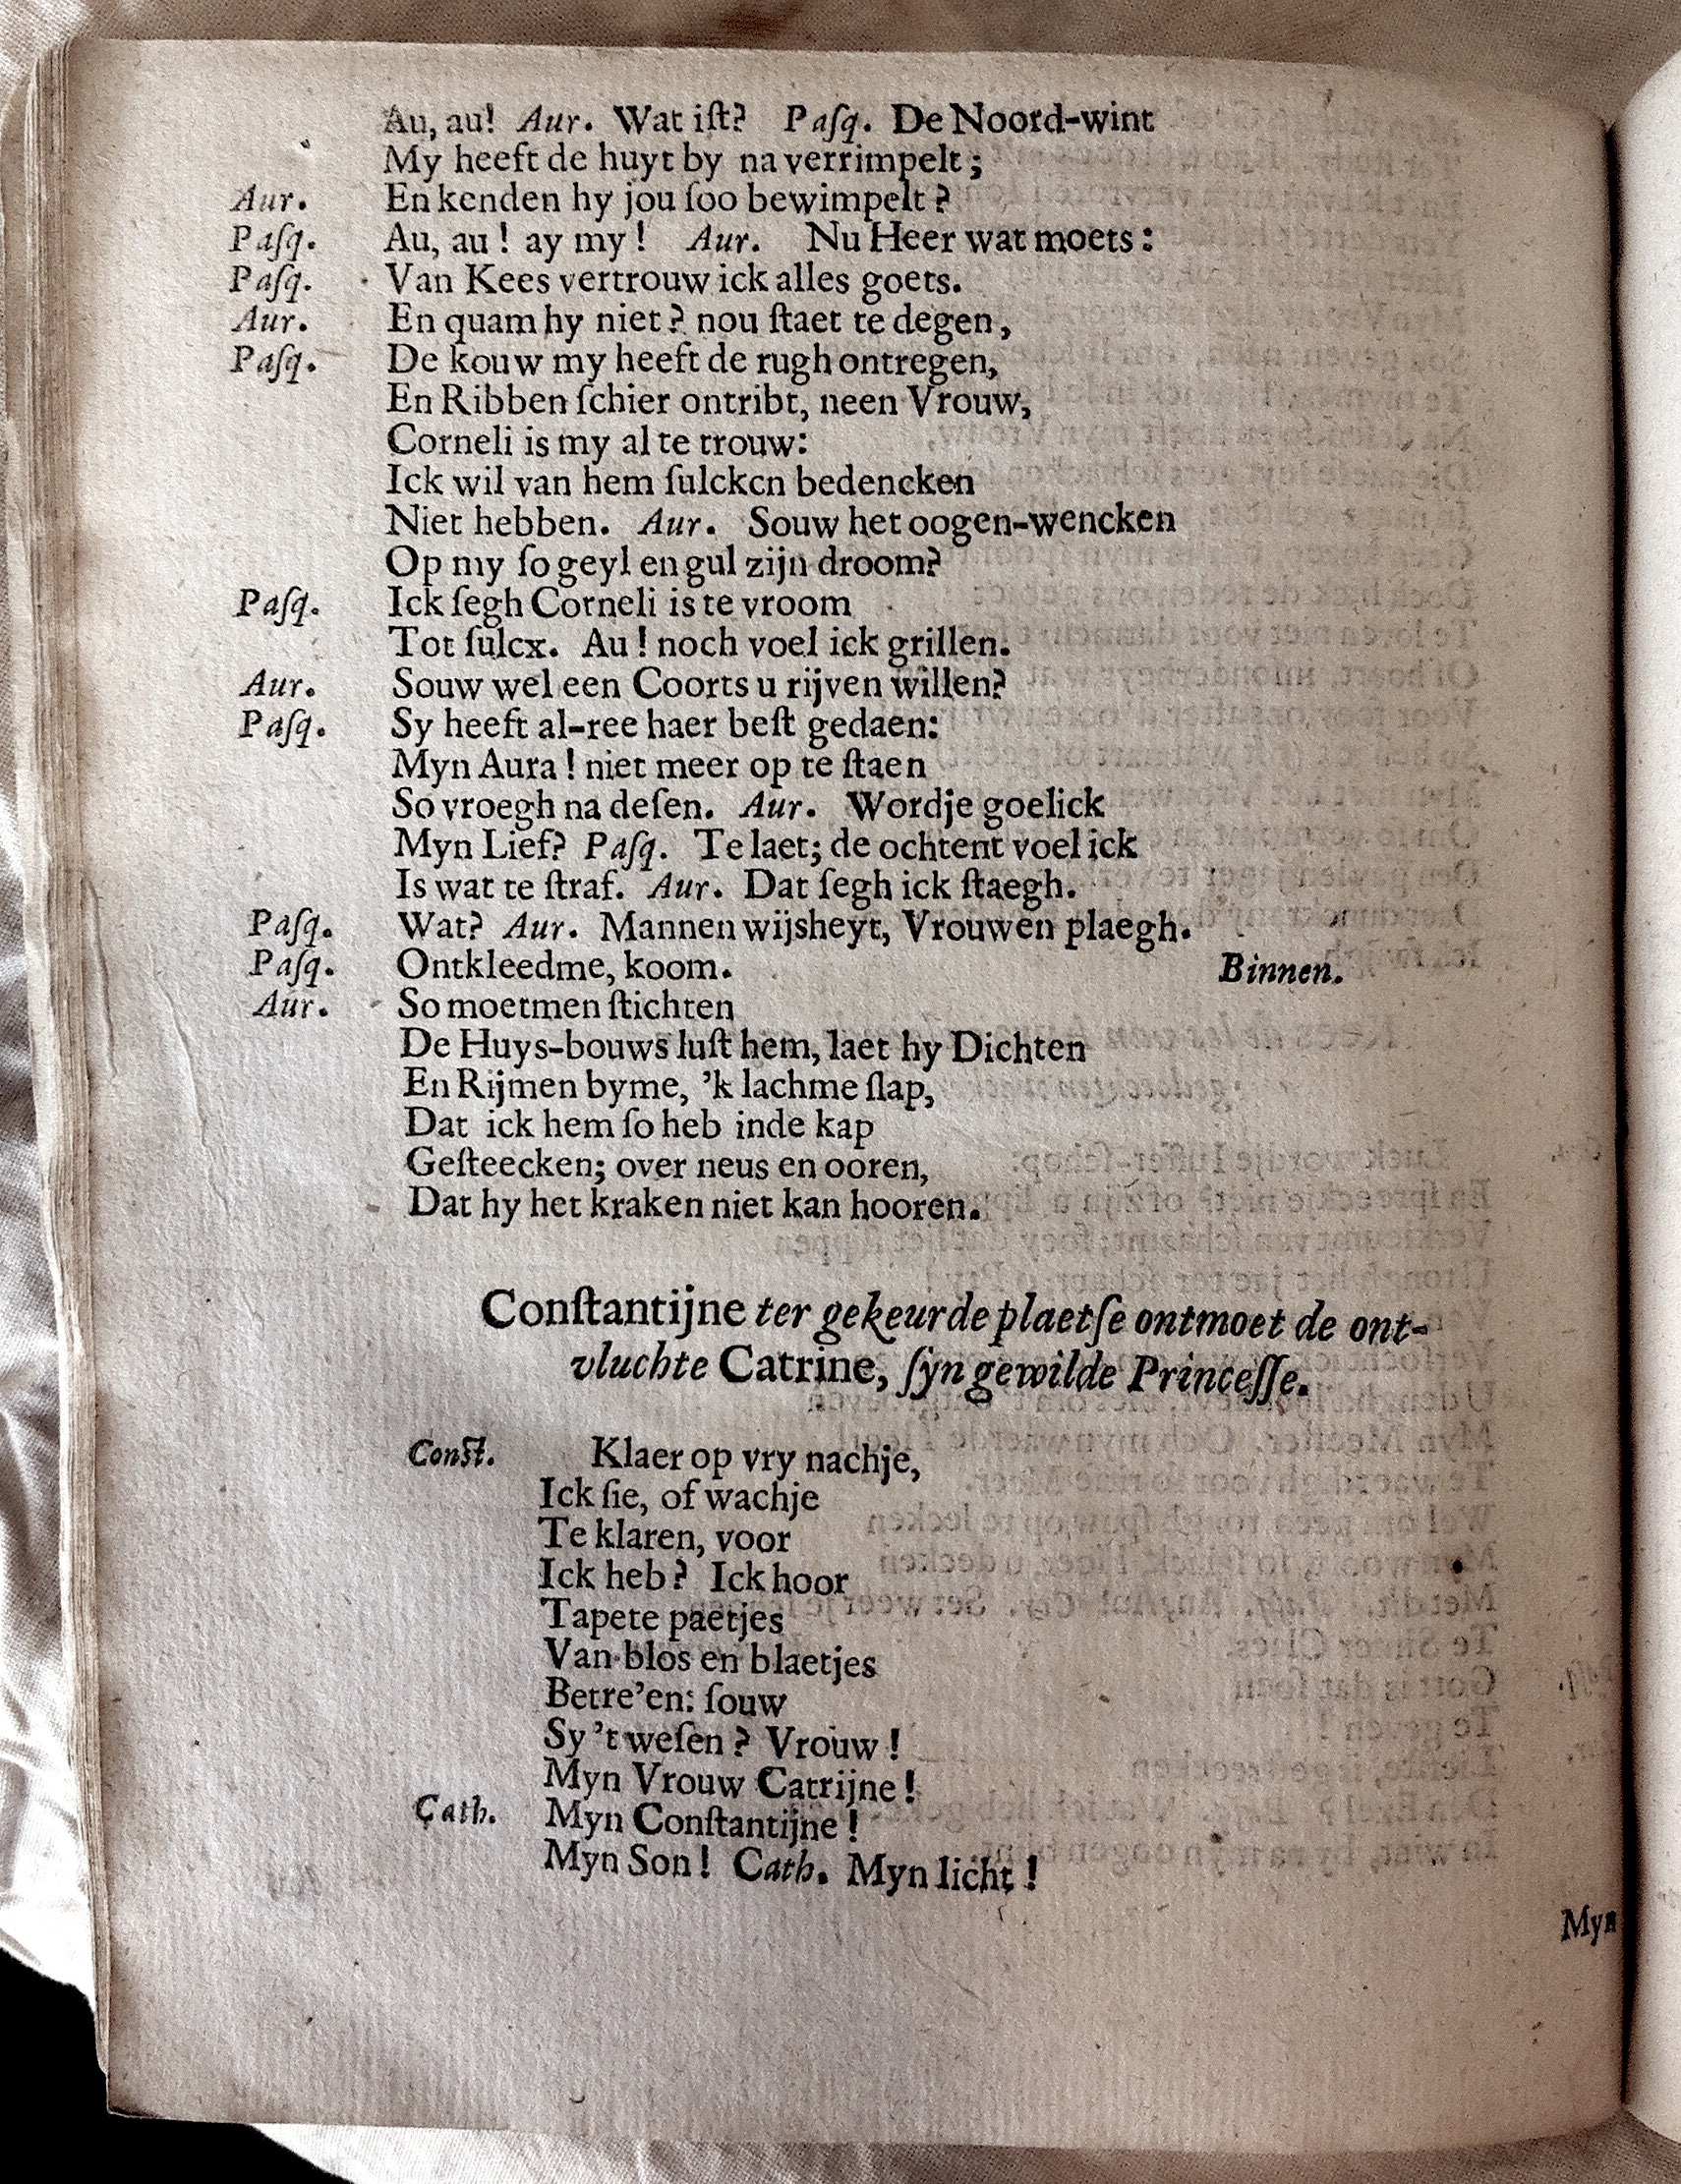 Au, au! Aur. Wat iſt? Paſq. De Noord-wint
My heeft de huyt by na verrimpelt;
Aur. En kenden hy jou ſoo bewimpelt?
Paſq. Au, au! ay my! Aur. Nu Heer wat moets:
Paſq. Van Kees vertrouw ick alles goets.
Aur. En quam hy niet? nou ſtaet te degen,
Paſq. De kouw my heeft de rugh ontregen,
En Ribben ſchier ontribt, neen Vrouw,
Corneli is my al te trouw:
Ick wil van hem ſulcken bedencken
Niet hebben. Aur. Souw het oogen-wencken
Op my ſo geyl en gul zijn droom?
Paſq. Ick ſegh Corneli is te vroom
Tot ſulcx. Au! noch voel ick grillen.
Aur. Souw wel een Coorts u rijven willen?
Paſq. Sy heeft al-ree haer beſt gedaen:
Myn Aura! niet meer op te ſtaen
So vroegh na deſen. Aur. Wordje goelick
Myn Lief? Paſq. Te laet; de ochtent voel ick
Is wat te ſtraf. Aur. Dat ſegh ick ſtaegh.
Paſq. Wat? Aur. Mannen wijsheyt, Vrouwen plaegh.
Paſq. Ontkleedme, koom. Binnen.
Aur. So moetmen ſtichten
De Huys-bouws luſt hem, laet hy Dichten
En Rijmen byme, 'k lachme ſlap,
Dat ick hem ſo heb inde kap
Geſteecken; over neus en ooren,
Dat hy het kraken niet kan hooren.
Conſtantijne ter gekeurde plaetſe ontmoet de ont-
vluchte Catrine, ſyn gewilde Princeſſe.
Conſt. Klaer op vry nachje,
Ick ſie, of wachje
Te klaren, voor
Ick heb? Ick hoor
Tapete paetjes
Van blos en blaetjes
Betre'en: ſouw
Sy 't weſen? Vrouw!
Myn Vrouw Catrijne!
Cath. Myn Conſtantijne!
Myn Son! Cath. Myn licht!
Myn